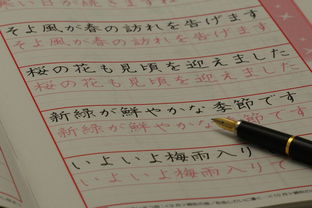 そよ風が春の訪れを告げます
そよ風が春の訪れを告げます
桜の花も見頃を迎えました
桜の花も見頃を迎えました
新緑が鮮やかな季節です
新緑が鮮やかな季節です
いよいよ梅雨入り
いよいよ梅雨入りで